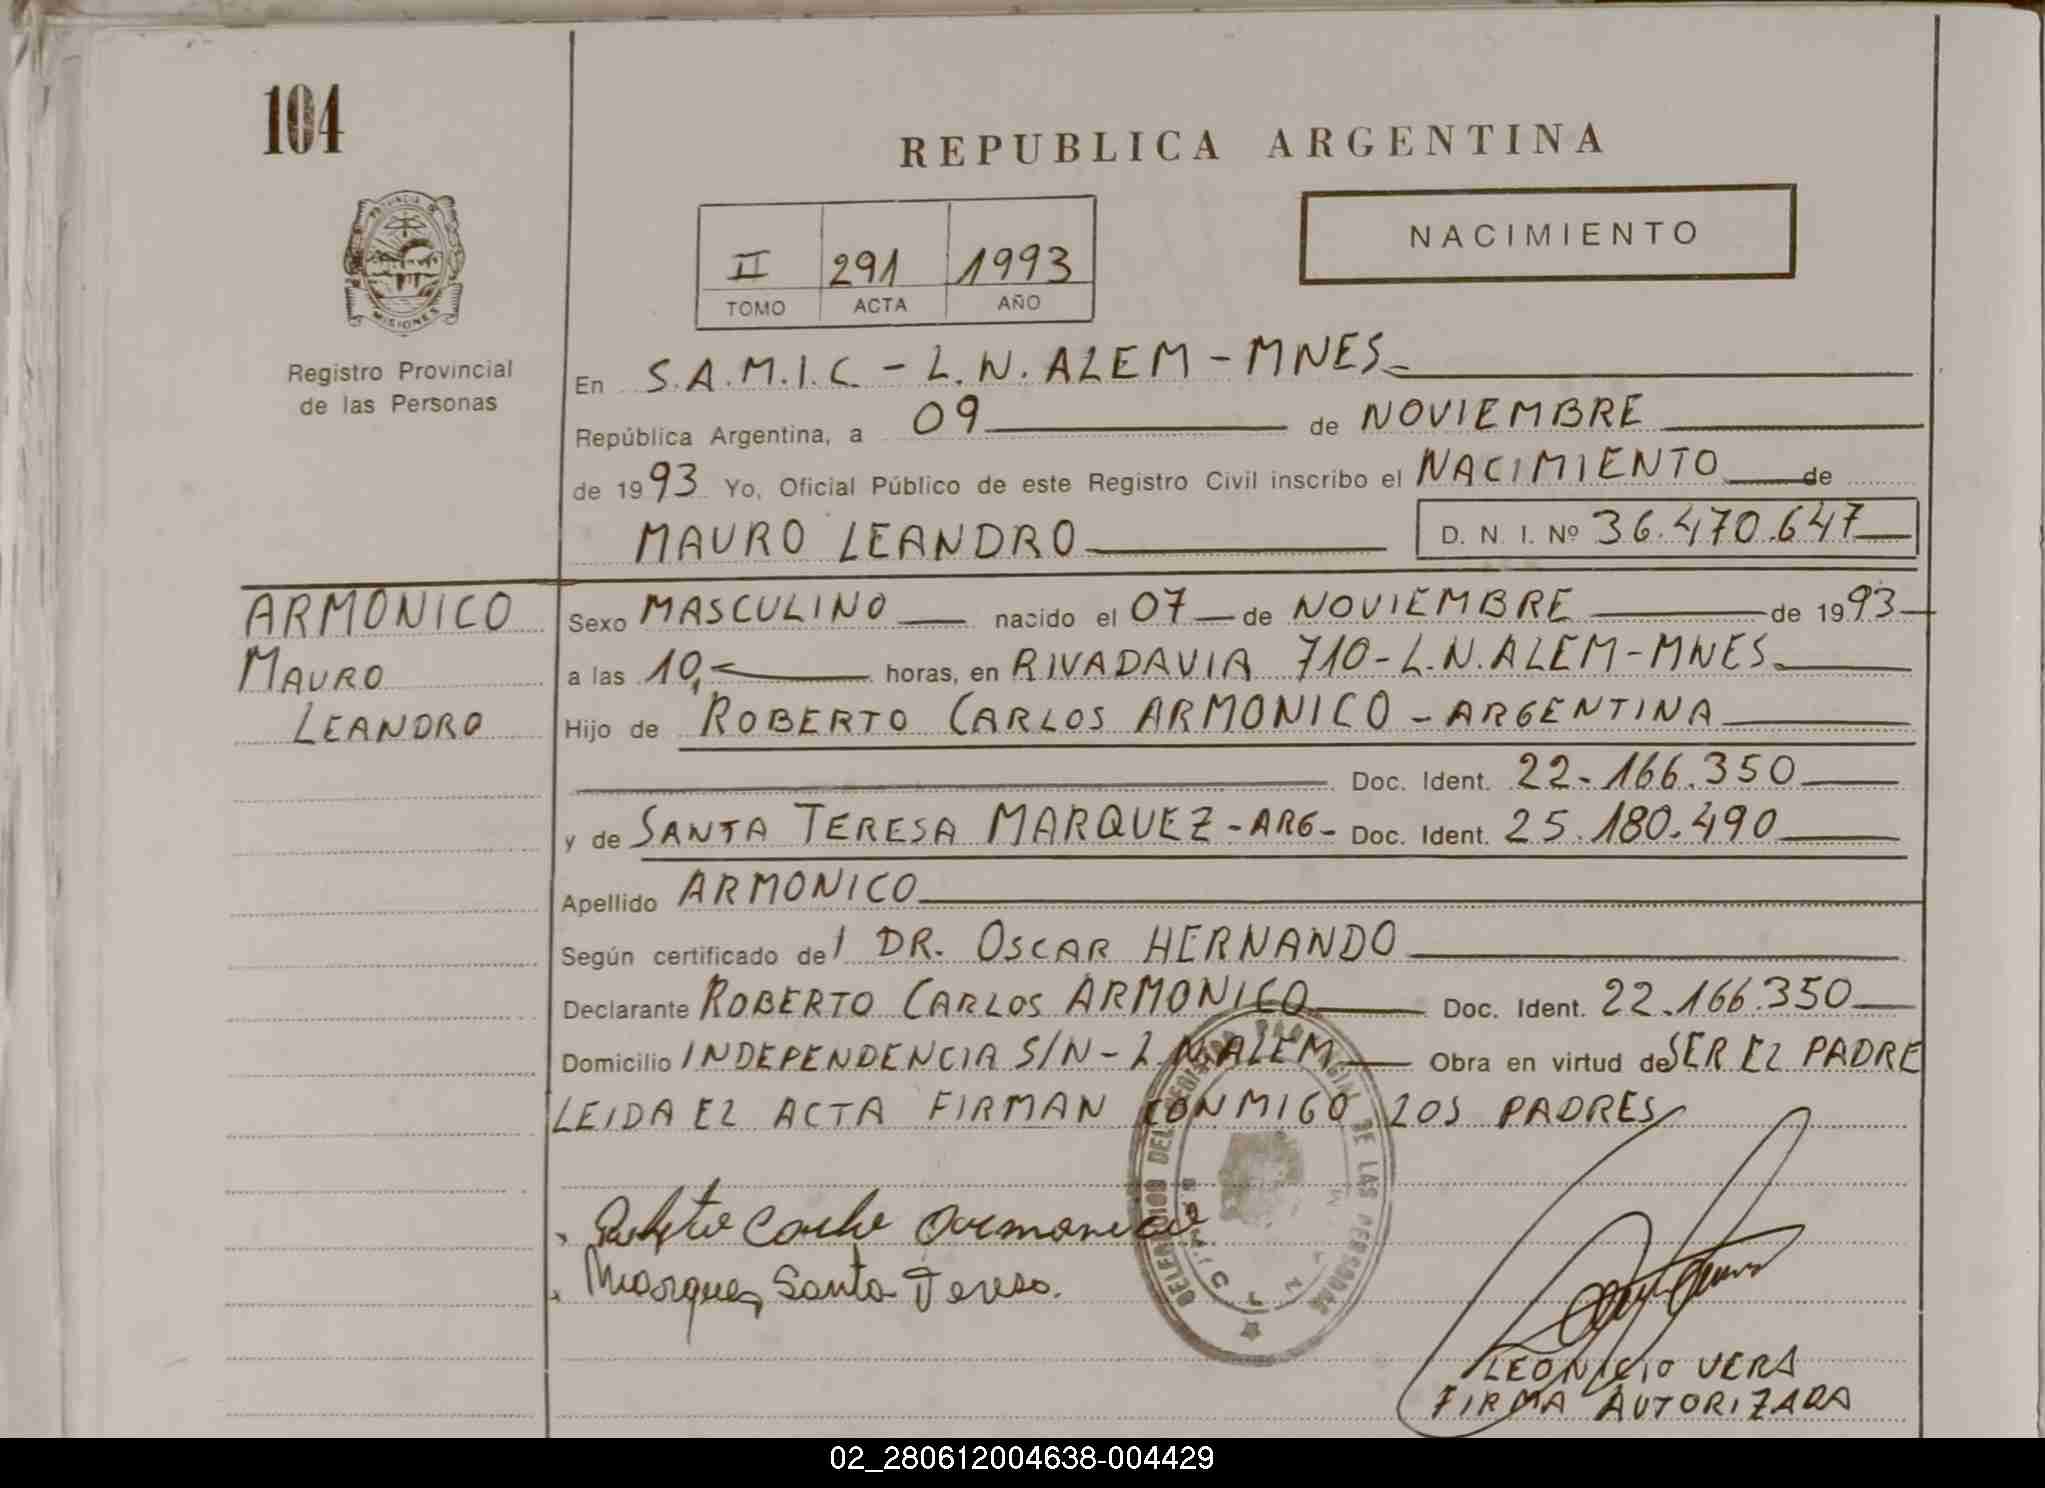 104
REPUBLICA ARGENTINA
PROVINCIA DE
MISIONES
II 291 1993
TOMO ACTA AÑO
NACIMIENTO
Registro Provincial
de las Personas
En S.A.M.I.C. - L.N. ALEM - MNES
República Argentina, a 09 de NOVIEMBRE
de 1993 Yo, Oficial Público de este Registro Civil inscribo el NACIMIENTO de
MAURO LEANDRO D. N. I. Nº 36.470.647
ARMONICO
MAURO
LEANDRO
Sexo MASCULINO nacido el 07 de NOVIEMBRE de 1993
a las 10, horas, en RIVADAVIA 710 - L.N. ALEM - MNES
Hijo de ROBERTO CARLOS ARMONICO - ARGENTINA
Doc. Ident. 22.166.350
y de SANTA TERESA MARQUEZ - ARG - Doc. Ident. 25.180.490
Apellido ARMONICO
Según certificado del DR. OSCAR HERNANDO
Declarante ROBERTO CARLOS ARMONICO Doc. Ident. 22.166.350
Domicilio INDEPENDENCIA S/N - L.N. ALEM Obra en virtud de SER EL PADRE
LEIDA EL ACTA FIRMAN CONMIGO LOS PADRES
Roberto Carlos Armonico
Marquez Santa Teresa.
DEL REGISTRO PROVINCIAL DE LAS PERSONAS
LEONICIO VERA
FIRMA AUTORIZADA
02_280612004638-004429